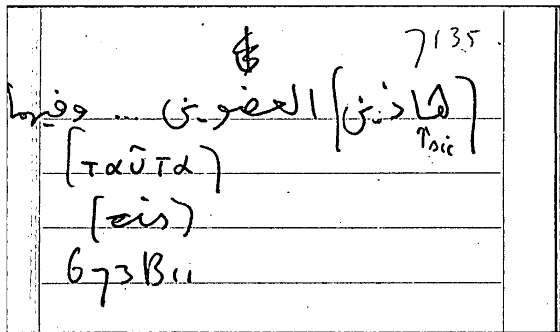 7135
[هاذين] العضوين ... وفيهما
↑sic
[ταῦτα]
[eis]
673B11